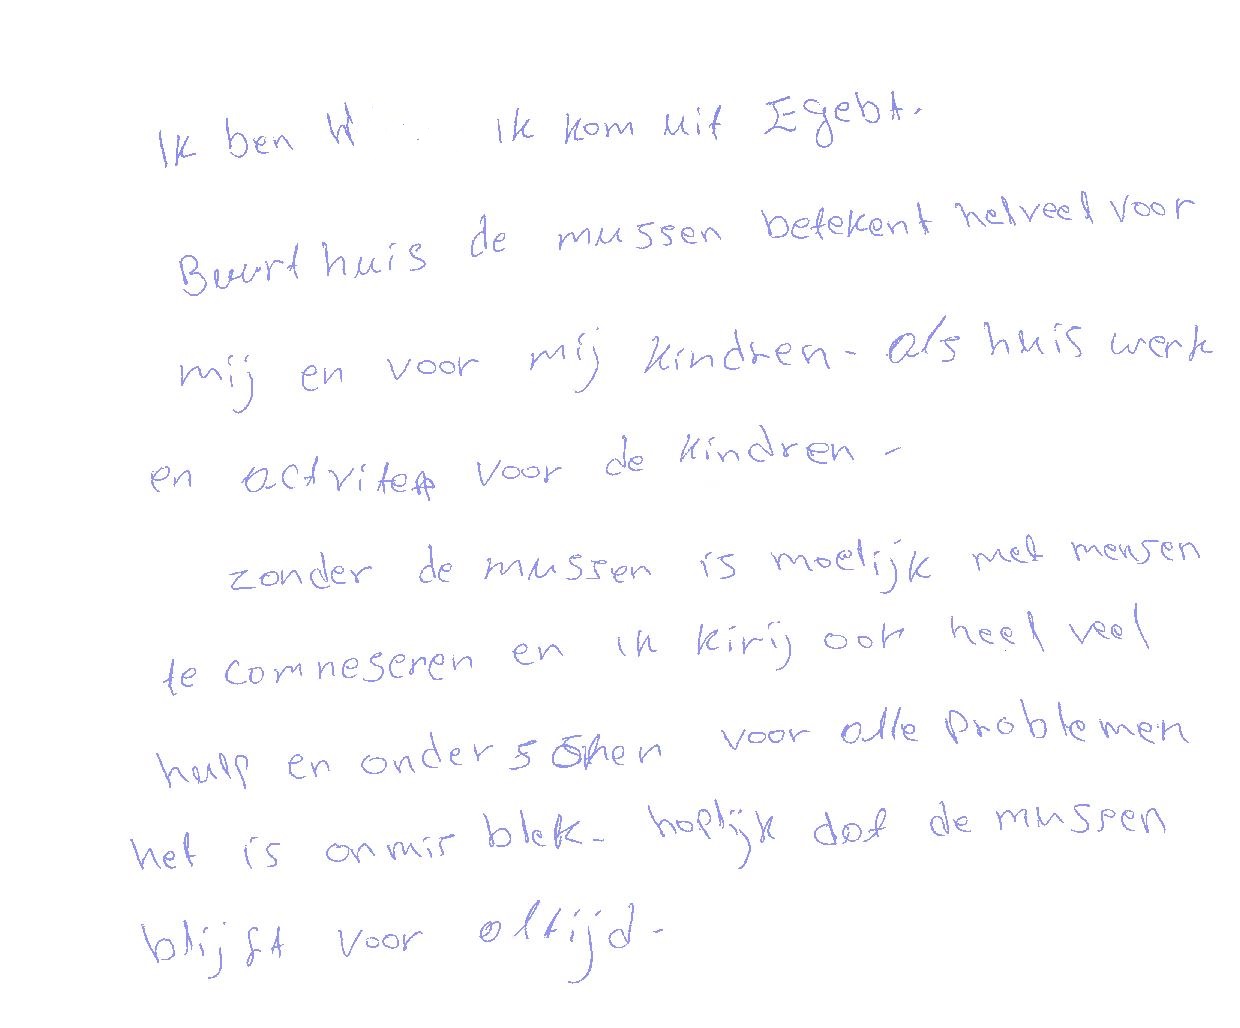 Ik ben W ik kom uit Egebt.
Buurthuis de mussen betekent helveel voor
mij en voor mij kindren - als huis werk
en actvite voor de kindren -
zonder de mussen is moelijk met mensen
te comneseren en ik kirij ook heel veel
hulp en onder voor alle problemen
het is onmis blek - hoplijk dat de mussen
blijft voor altijd -